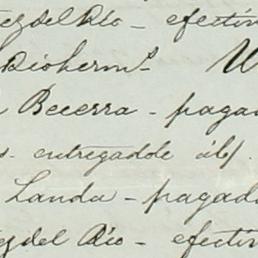 ez del Rio - efectiv
Rio herms
Becerra - pagad
s. entregadole
Landa - pagad
ez del Rio - efectiv